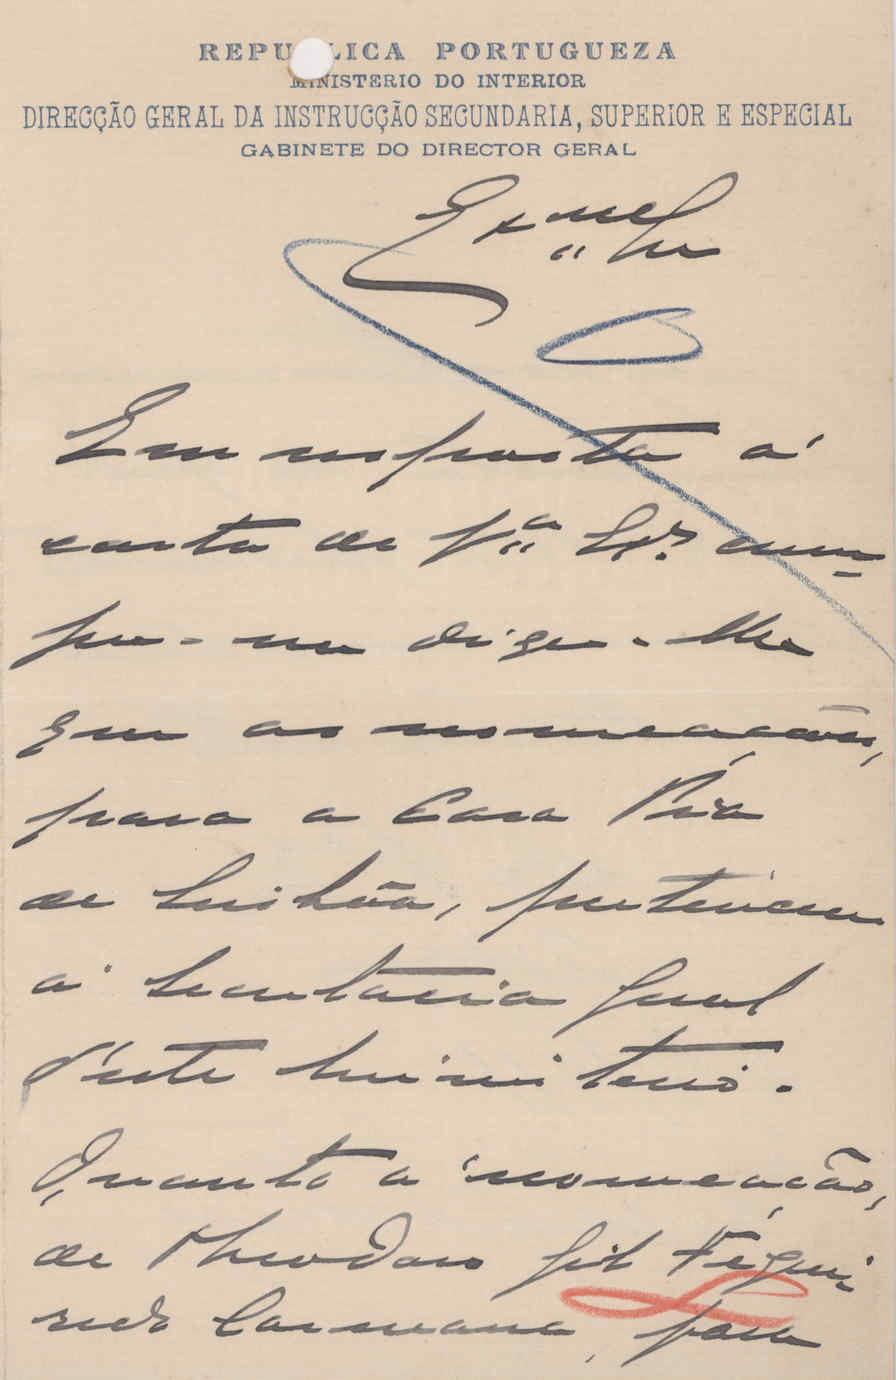 REPUBLICA PORTUGUEZA
MINISTERIO DO INTERIOR
DIRECÇÃO GERAL DA INSTRUCÇÃO SECUNDARIA, SUPERIOR E ESPECIAL
GABINETE DO DIRECTOR GERAL
Exmo Sr
Em resposta á
carta de V.ª Ex.ª cum-
pre-me dizer-lhe
que as nomeações,
para a Casa Pia
de Lisbôa, pertencem
á Secretaria Geral
d'este Ministerio.
Quanto a nomeação,
de Theodoro Gil Figuei
redo Carmona, para